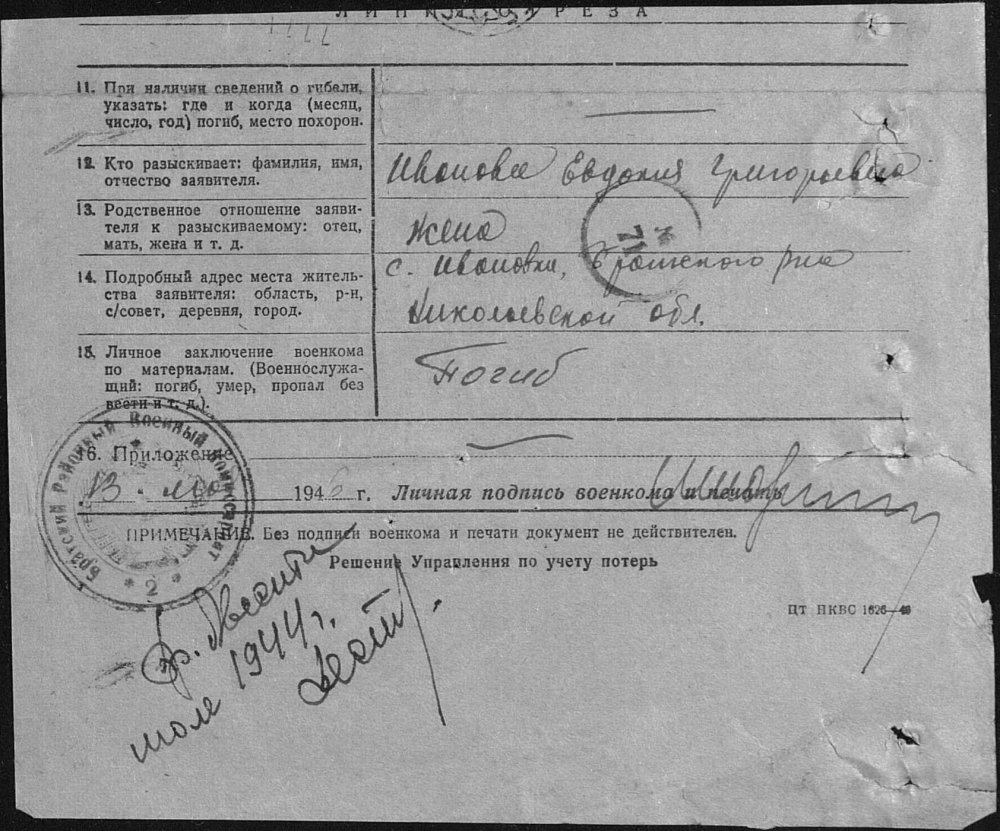 ЛИНИЯ ОТРЕЗА
11. При наличии сведений о гибели,
указать: где и когда (месяц,
число, год) погиб, место похорон.
12. Кто разыскивает: фамилия, имя,
отчество заявителя.
Ивановна Евдокия Григорьевна
13. Родственное отношение заяви-
теля к разыскиваемому: отец,
мать, жена и т. д.
жена
№ 71
14. Подробный адрес места житель-
ства заявителя: область, р-н,
с/совет, деревня, город.
с. Ивановка, Братского р-на
Николаевской обл.
15. Личное заключение военкома
по материалам. (Военнослужа-
щий: погиб, умер, пропал без
вести и т. д.).
Погиб
16. Приложение
13. 1946 г. Личная подпись военкома и печать
Братский Районный Военный Комиссариат
* 2 *
ПРИМЕЧАНИЕ. Без подписи военкома и печати документ не действителен.
Решение Управления по учету потерь
пр. вести
июле 1944г.
ЦТ НКВС 1626—46